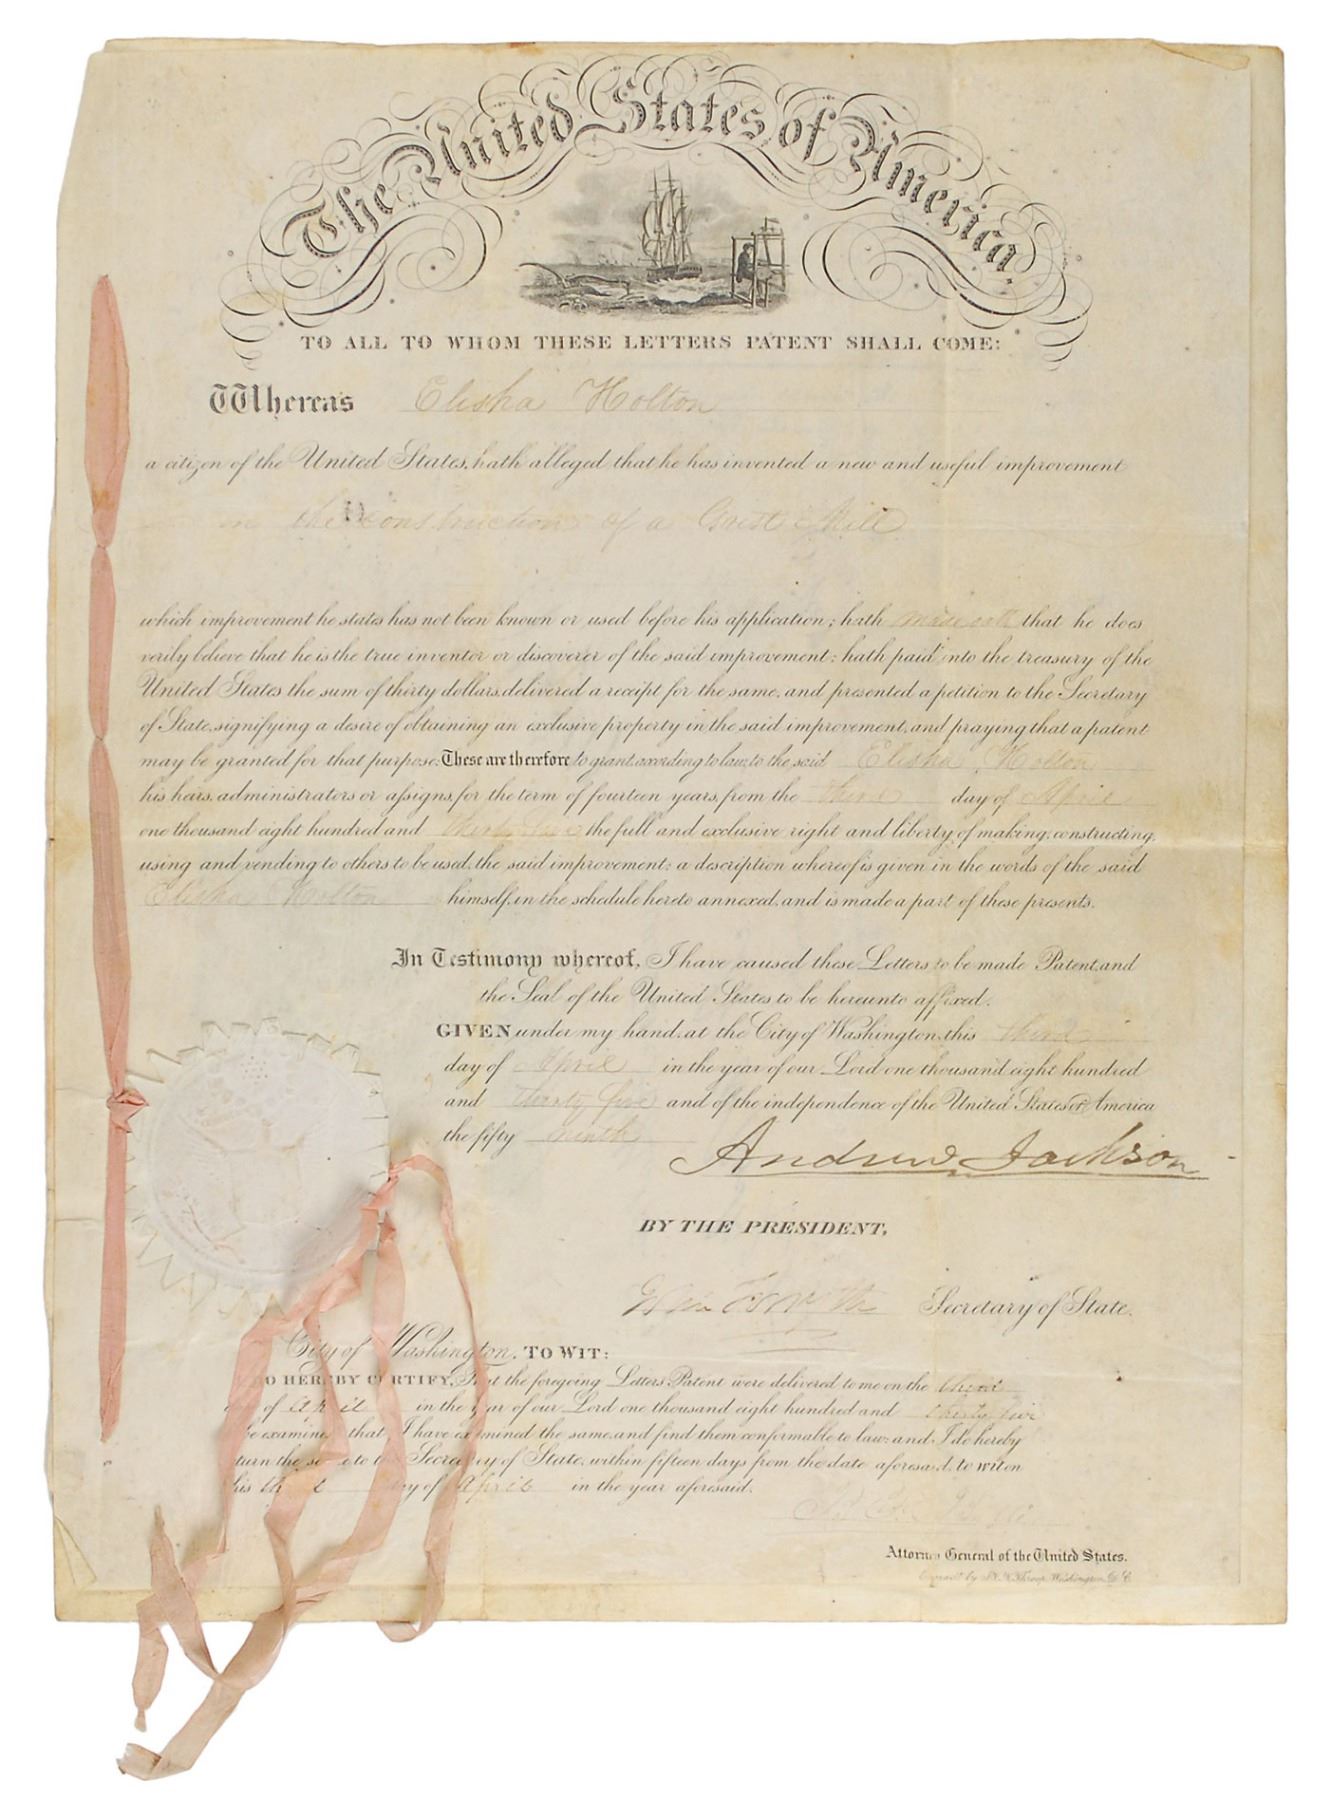 The United States of America,
TO ALL TO WHOM THESE LETTERS PATENT SHALL COME:
Whereas Elisha Holton
a citizen of the United States, hath alleged that he has invented a new and useful improvement
in the construction of a Grist Mill
which improvement he states has not been known or used before his application; hath made oath that he does
verily believe that he is the true inventor or discoverer of the said improvement; hath paid into the treasury of the
United States the sum of thirty dollars, delivered a receipt for the same, and presented a petition to the Secretary
of State, signifying a desire of obtaining an exclusive property in the said improvement, and praying that a patent
may be granted for that purpose: These are therefore to grant, according to law, to the said Elisha Holton
his heirs, administrators or assigns, for the term of fourteen years, from the third day of April
one thousand eight hundred and thirty five the full and exclusive right and liberty of making, constructing,
using and vending to others to be used, the said improvement; a description whereof is given in the words of the said
Elisha Holton himself, in the schedule hereto annexed, and is made a part of these presents.
In Testimony whereof, I have caused these Letters to be made Patent, and
the Seal of the United States to be hereunto affixed.
GIVEN under my hand, at the City of Washington, this third
day of April in the year of our Lord one thousand eight hundred
and thirty five and of the independence of the United States of America
the fifty ninth
Andrew Jackson
BY THE PRESIDENT,
John Forsyth Secretary of State.
City of Washington, TO WIT:
DO HEREBY CERTIFY, That the foregoing Letters Patent were delivered to me on the third
of April in the year of our Lord one thousand eight hundred and thirty five
be examined, that I have examined the same, and find them conformable to law; and I do hereby
turn the same to the Secretary of State, within fifteen days from the date aforesaid, to wit on
this third day of April in the year aforesaid.
Attorney General of the United States.
Washington, D. C.